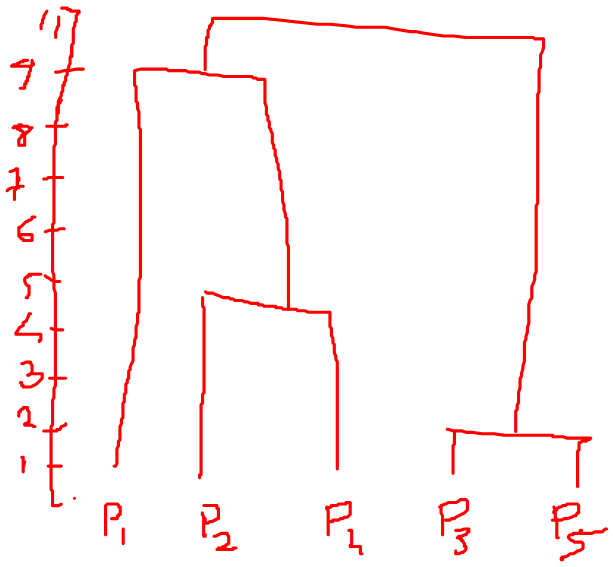 11
9
8
7
6
5
4
3
2
1
P1 P2 P4 P3 P5